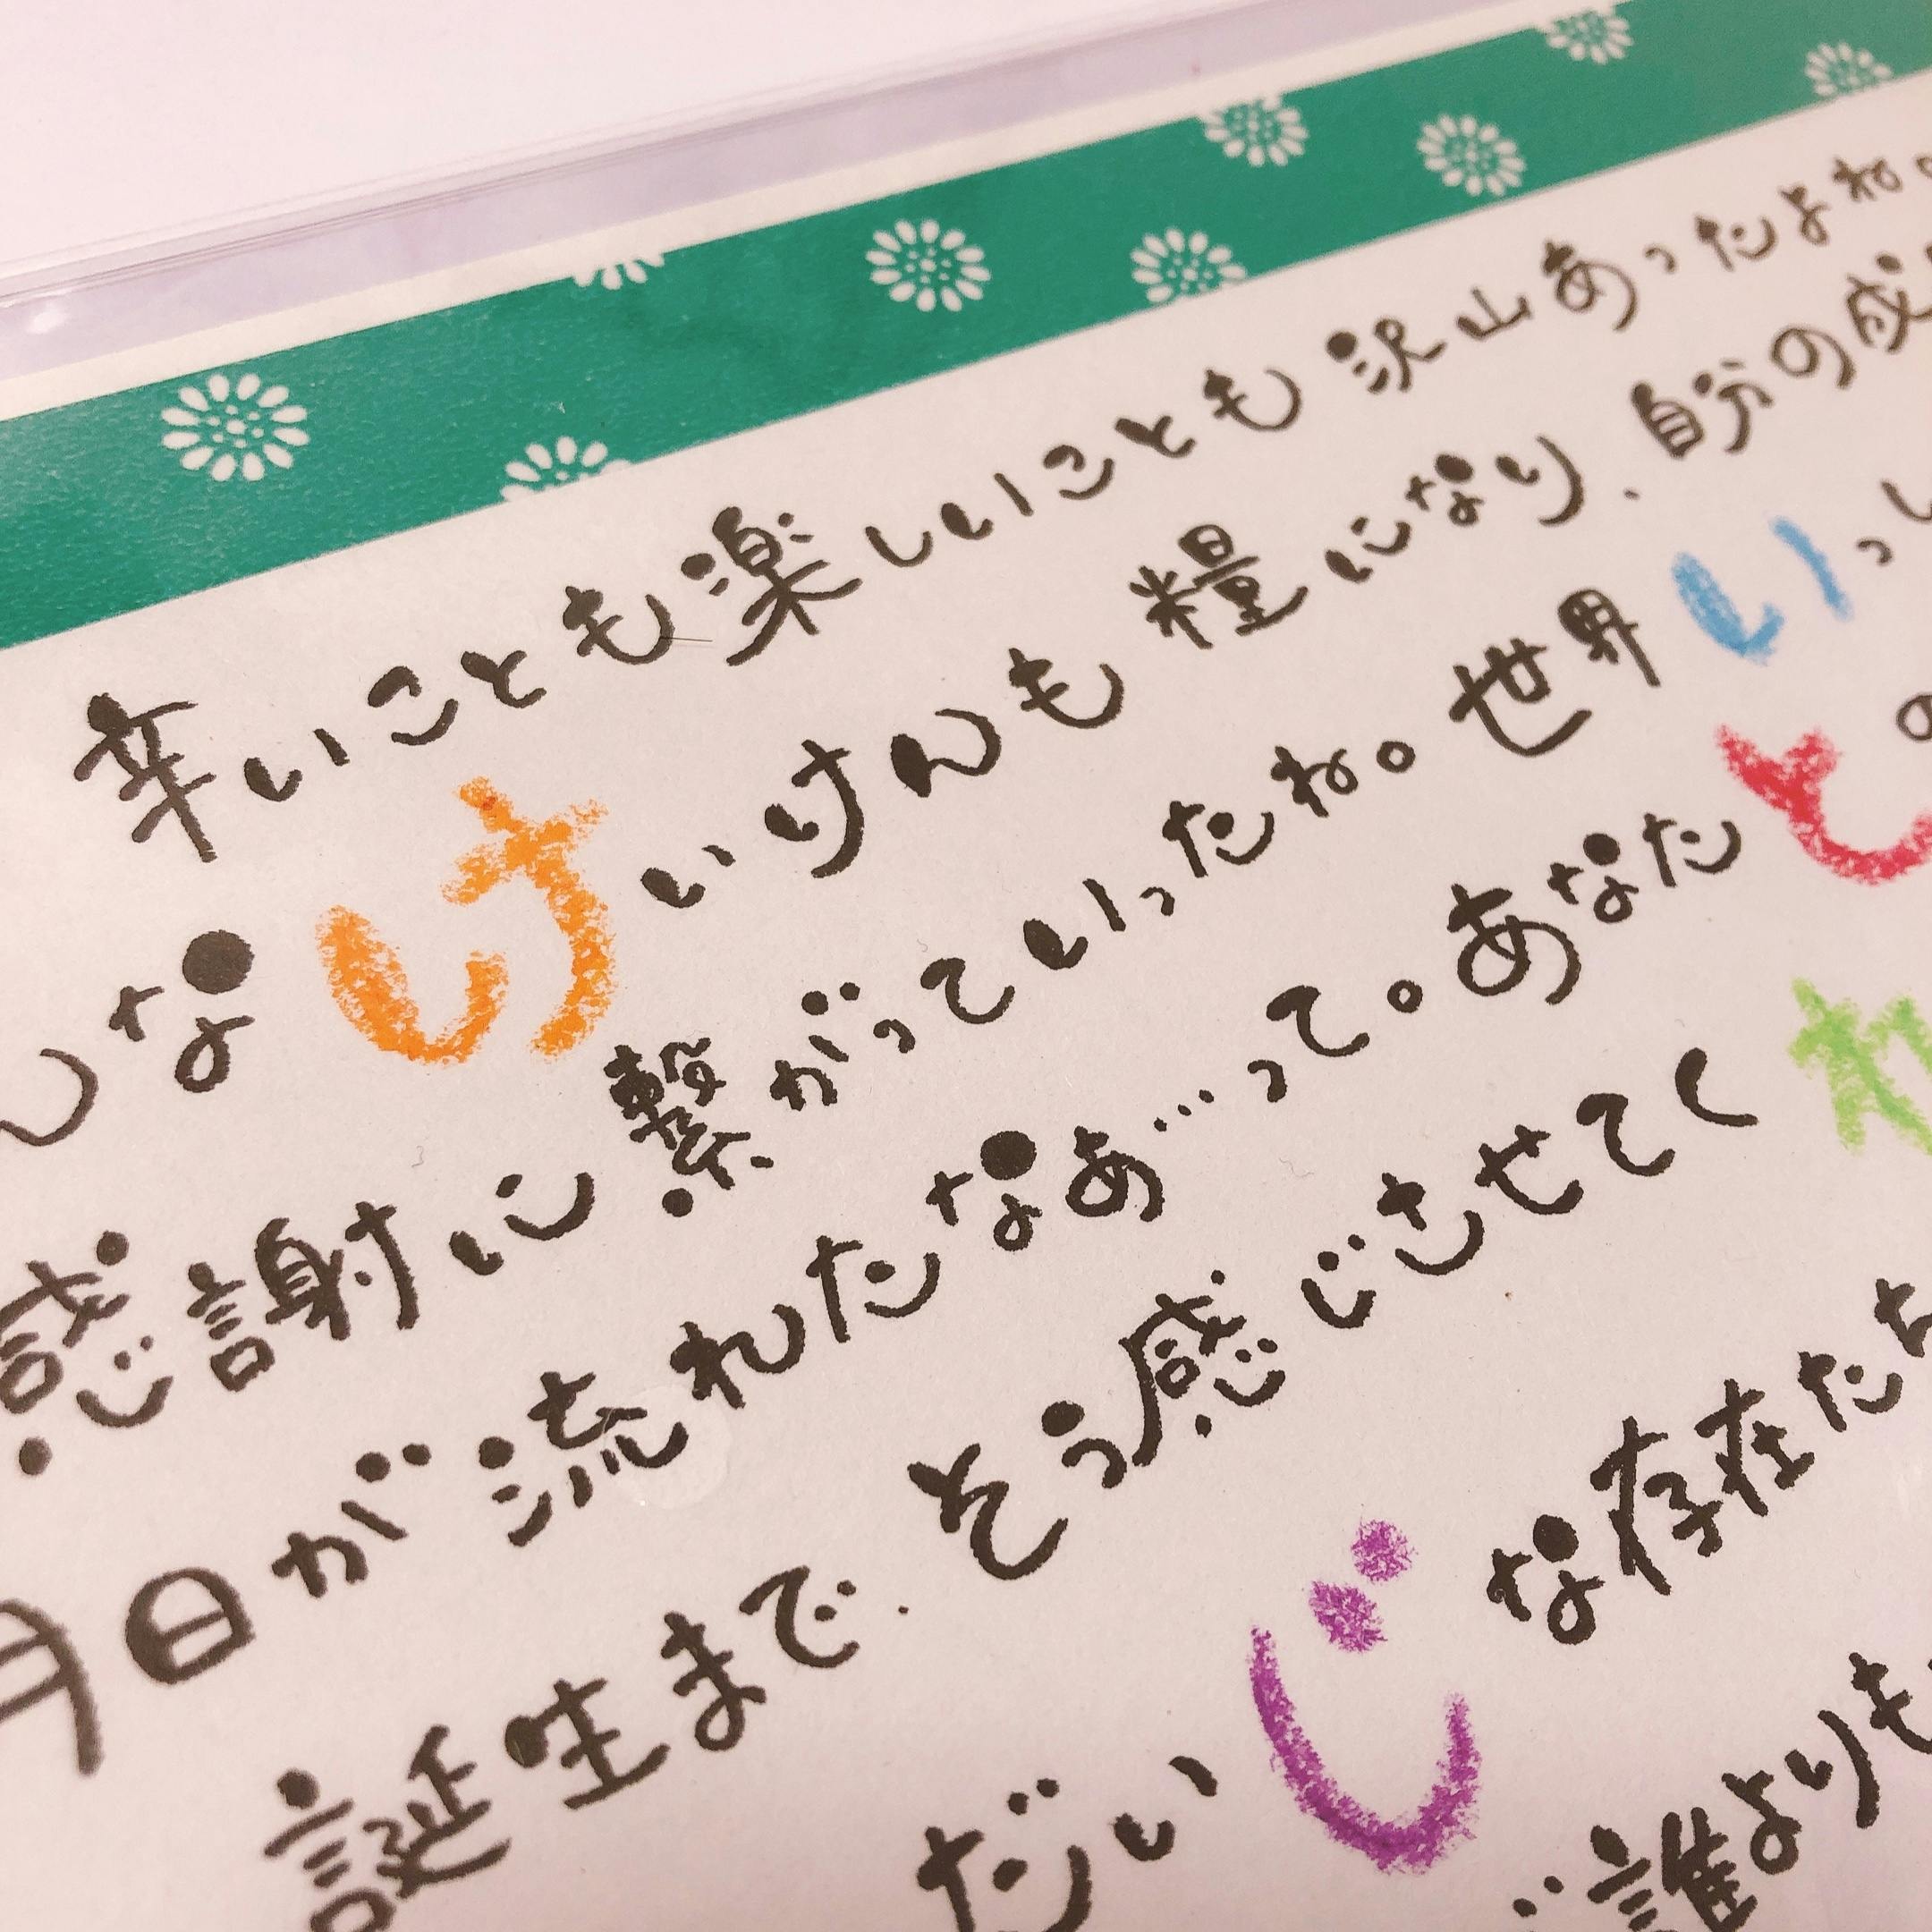 辛いことも楽しいことも沢山あったよね。
んなけいけんも糧になり、自分の成
感謝に繋がっていったね。世界いっし
月日が流れたなぁ…って。あなたとの
誕生まで、そう感じさせてくれ
だいじな存在だ
誰よりも